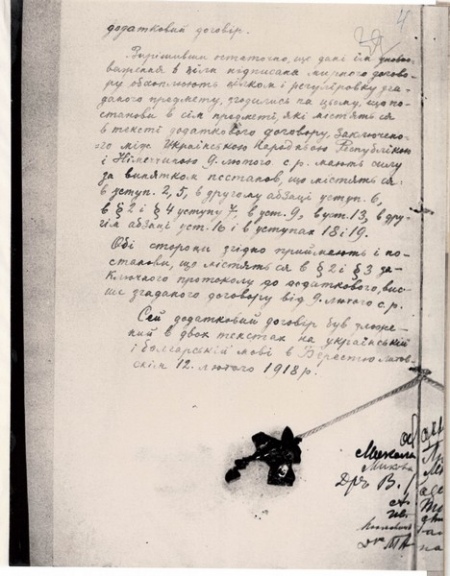 додатковий договір.
Рішивши остаточно, що дані їм уповно-
важення в ціли підписаня мирного догово-
ру обхоплюють цілком і регуліровку зга-
даного предмету, згодились на цьому, що по-
станови в сім предметі, які містяться
в тексті додаткового договору, заключено-
го між Українською Народньою Республікою
і Німеччиною 9. лютого с.р. мають силу
за вийнятком постанов, що містяться
в уступ. 2, 5, в другому абзаці уступ. 6,
в § 2 і § 4 уступу 7, в уст. 9, в уст. 13, в дру-
гім абзаці уст. 16 і в уступах 18 і 19.
Обі сторони згідно приймають і по-
станови, що містяться в § 2 і § 3 за-
ключного протоколу до додаткового, вис-
ше згаданого договору від 9. лютого с.р.
Сей додатковий договір був зложе-
ний в двох текстах на українській
і болгарській мові в Берестю Литов-
скім 12. лютого 1918 р.
Микола
Микова
Дръ В.